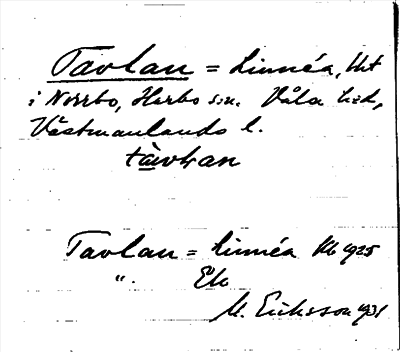 Tavlan = Linnéa, tht
i Norrbo, Harbo s:n. Våla hd,
Västmanlands l.
tàvḷan
Tavlan = Linnéa Kb 1925
". Ek
M. Eriksson 1931